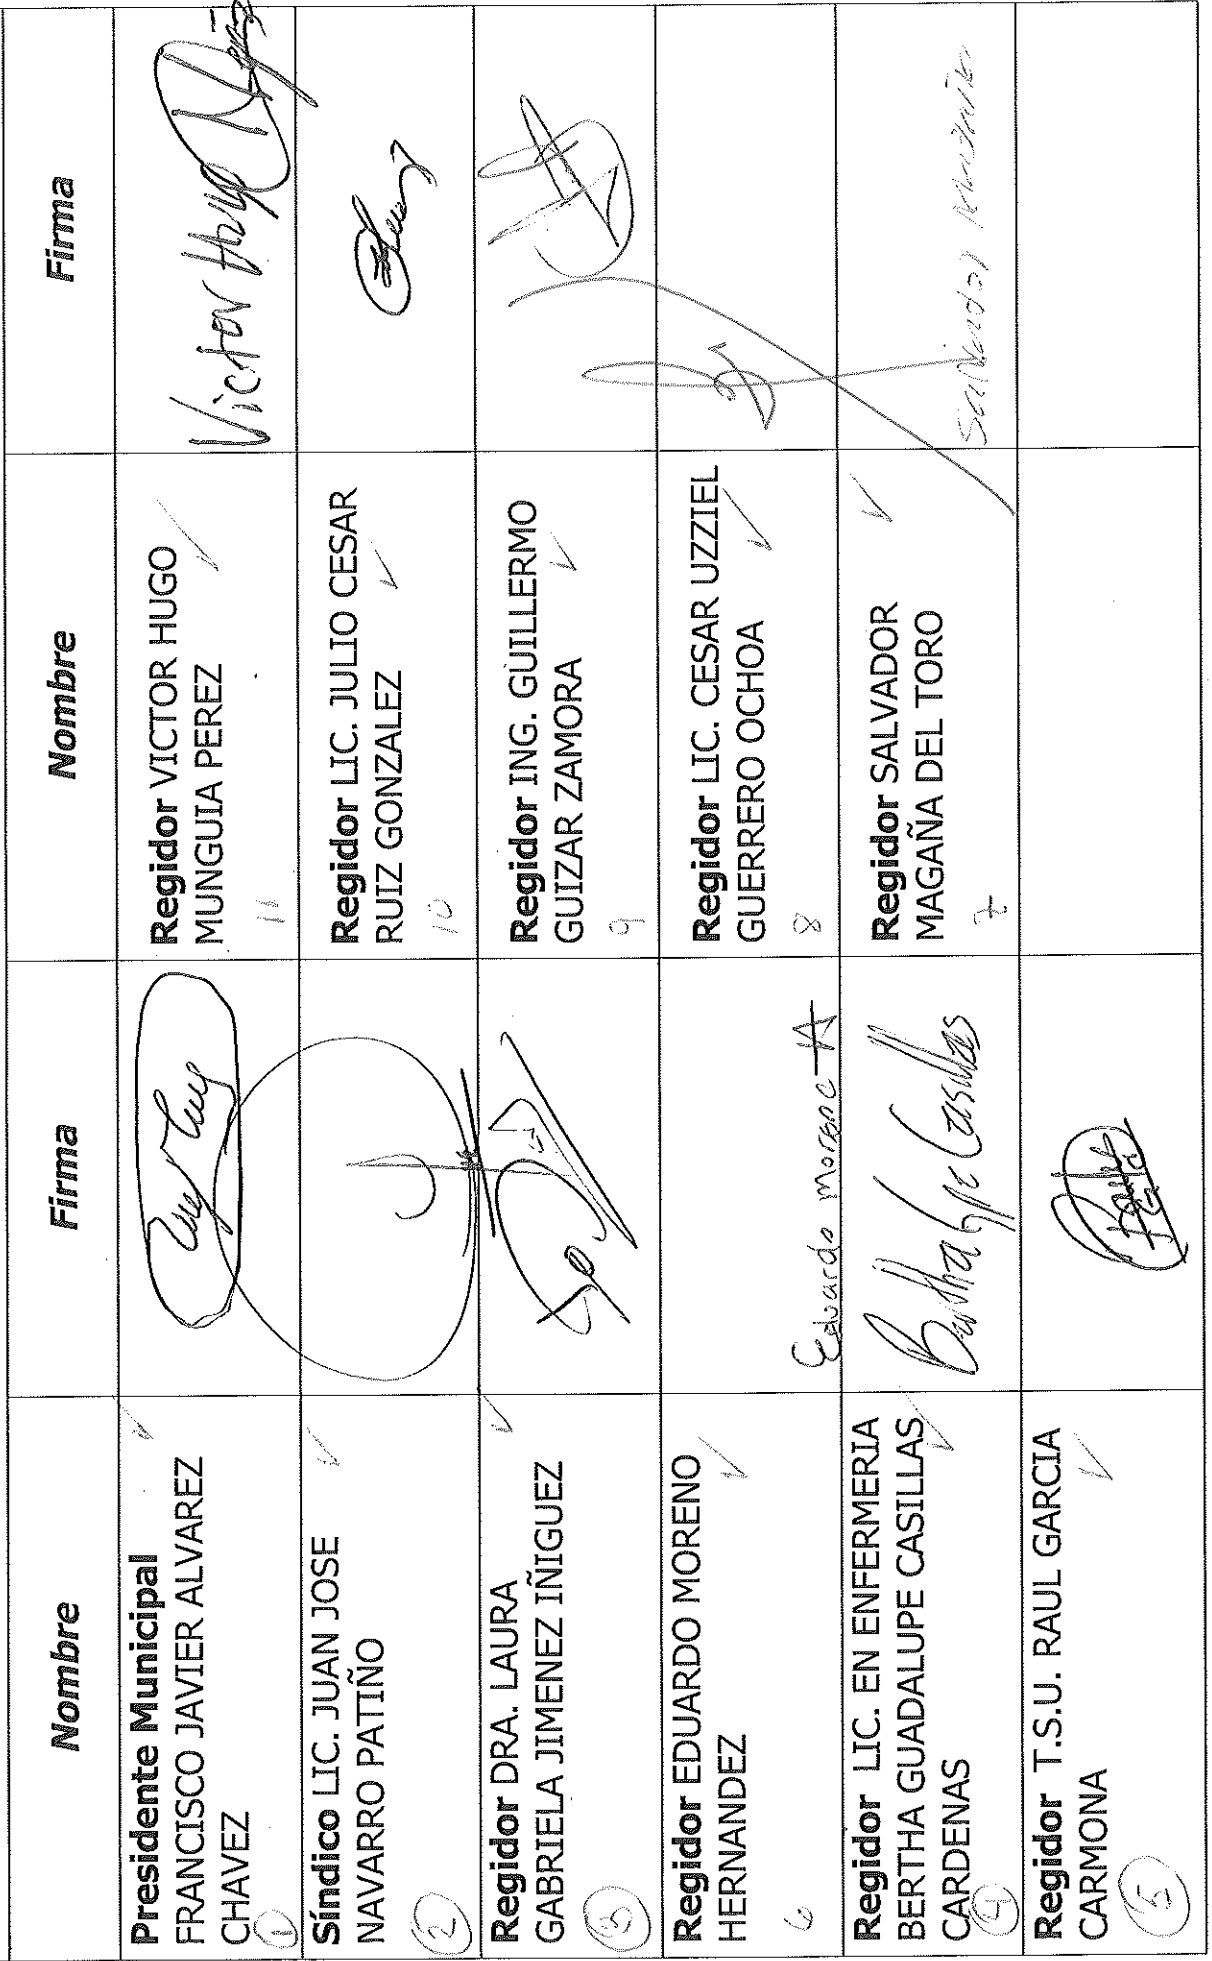 Nombre	Firma	Nombre	Firma
Presidente Municipal
FRANCISCO JAVIER ALVAREZ
CHAVEZ
1
Regidor VICTOR HUGO
MUNGUIA PEREZ
11
Victor Hugo
Síndico LIC. JUAN JOSE
NAVARRO PATIÑO
2
Regidor LIC. JULIO CESAR
RUIZ GONZALEZ
10
Regidor DRA. LAURA
GABRIELA JIMENEZ IÑIGUEZ
3
Regidor ING. GUILLERMO
GUIZAR ZAMORA
9
Regidor EDUARDO MORENO
HERNANDEZ
6
Eduardo moreno H
Regidor LIC. CESAR UZZIEL
GUERRERO OCHOA
8
Regidor LIC. EN ENFERMERIA
BERTHA GUADALUPE CASILLAS
CARDENAS
4
Bertha Gpe Casillas
Regidor SALVADOR
MAGAÑA DEL TORO
7
Salvador
Regidor T.S.U. RAUL GARCIA
CARMONA
5